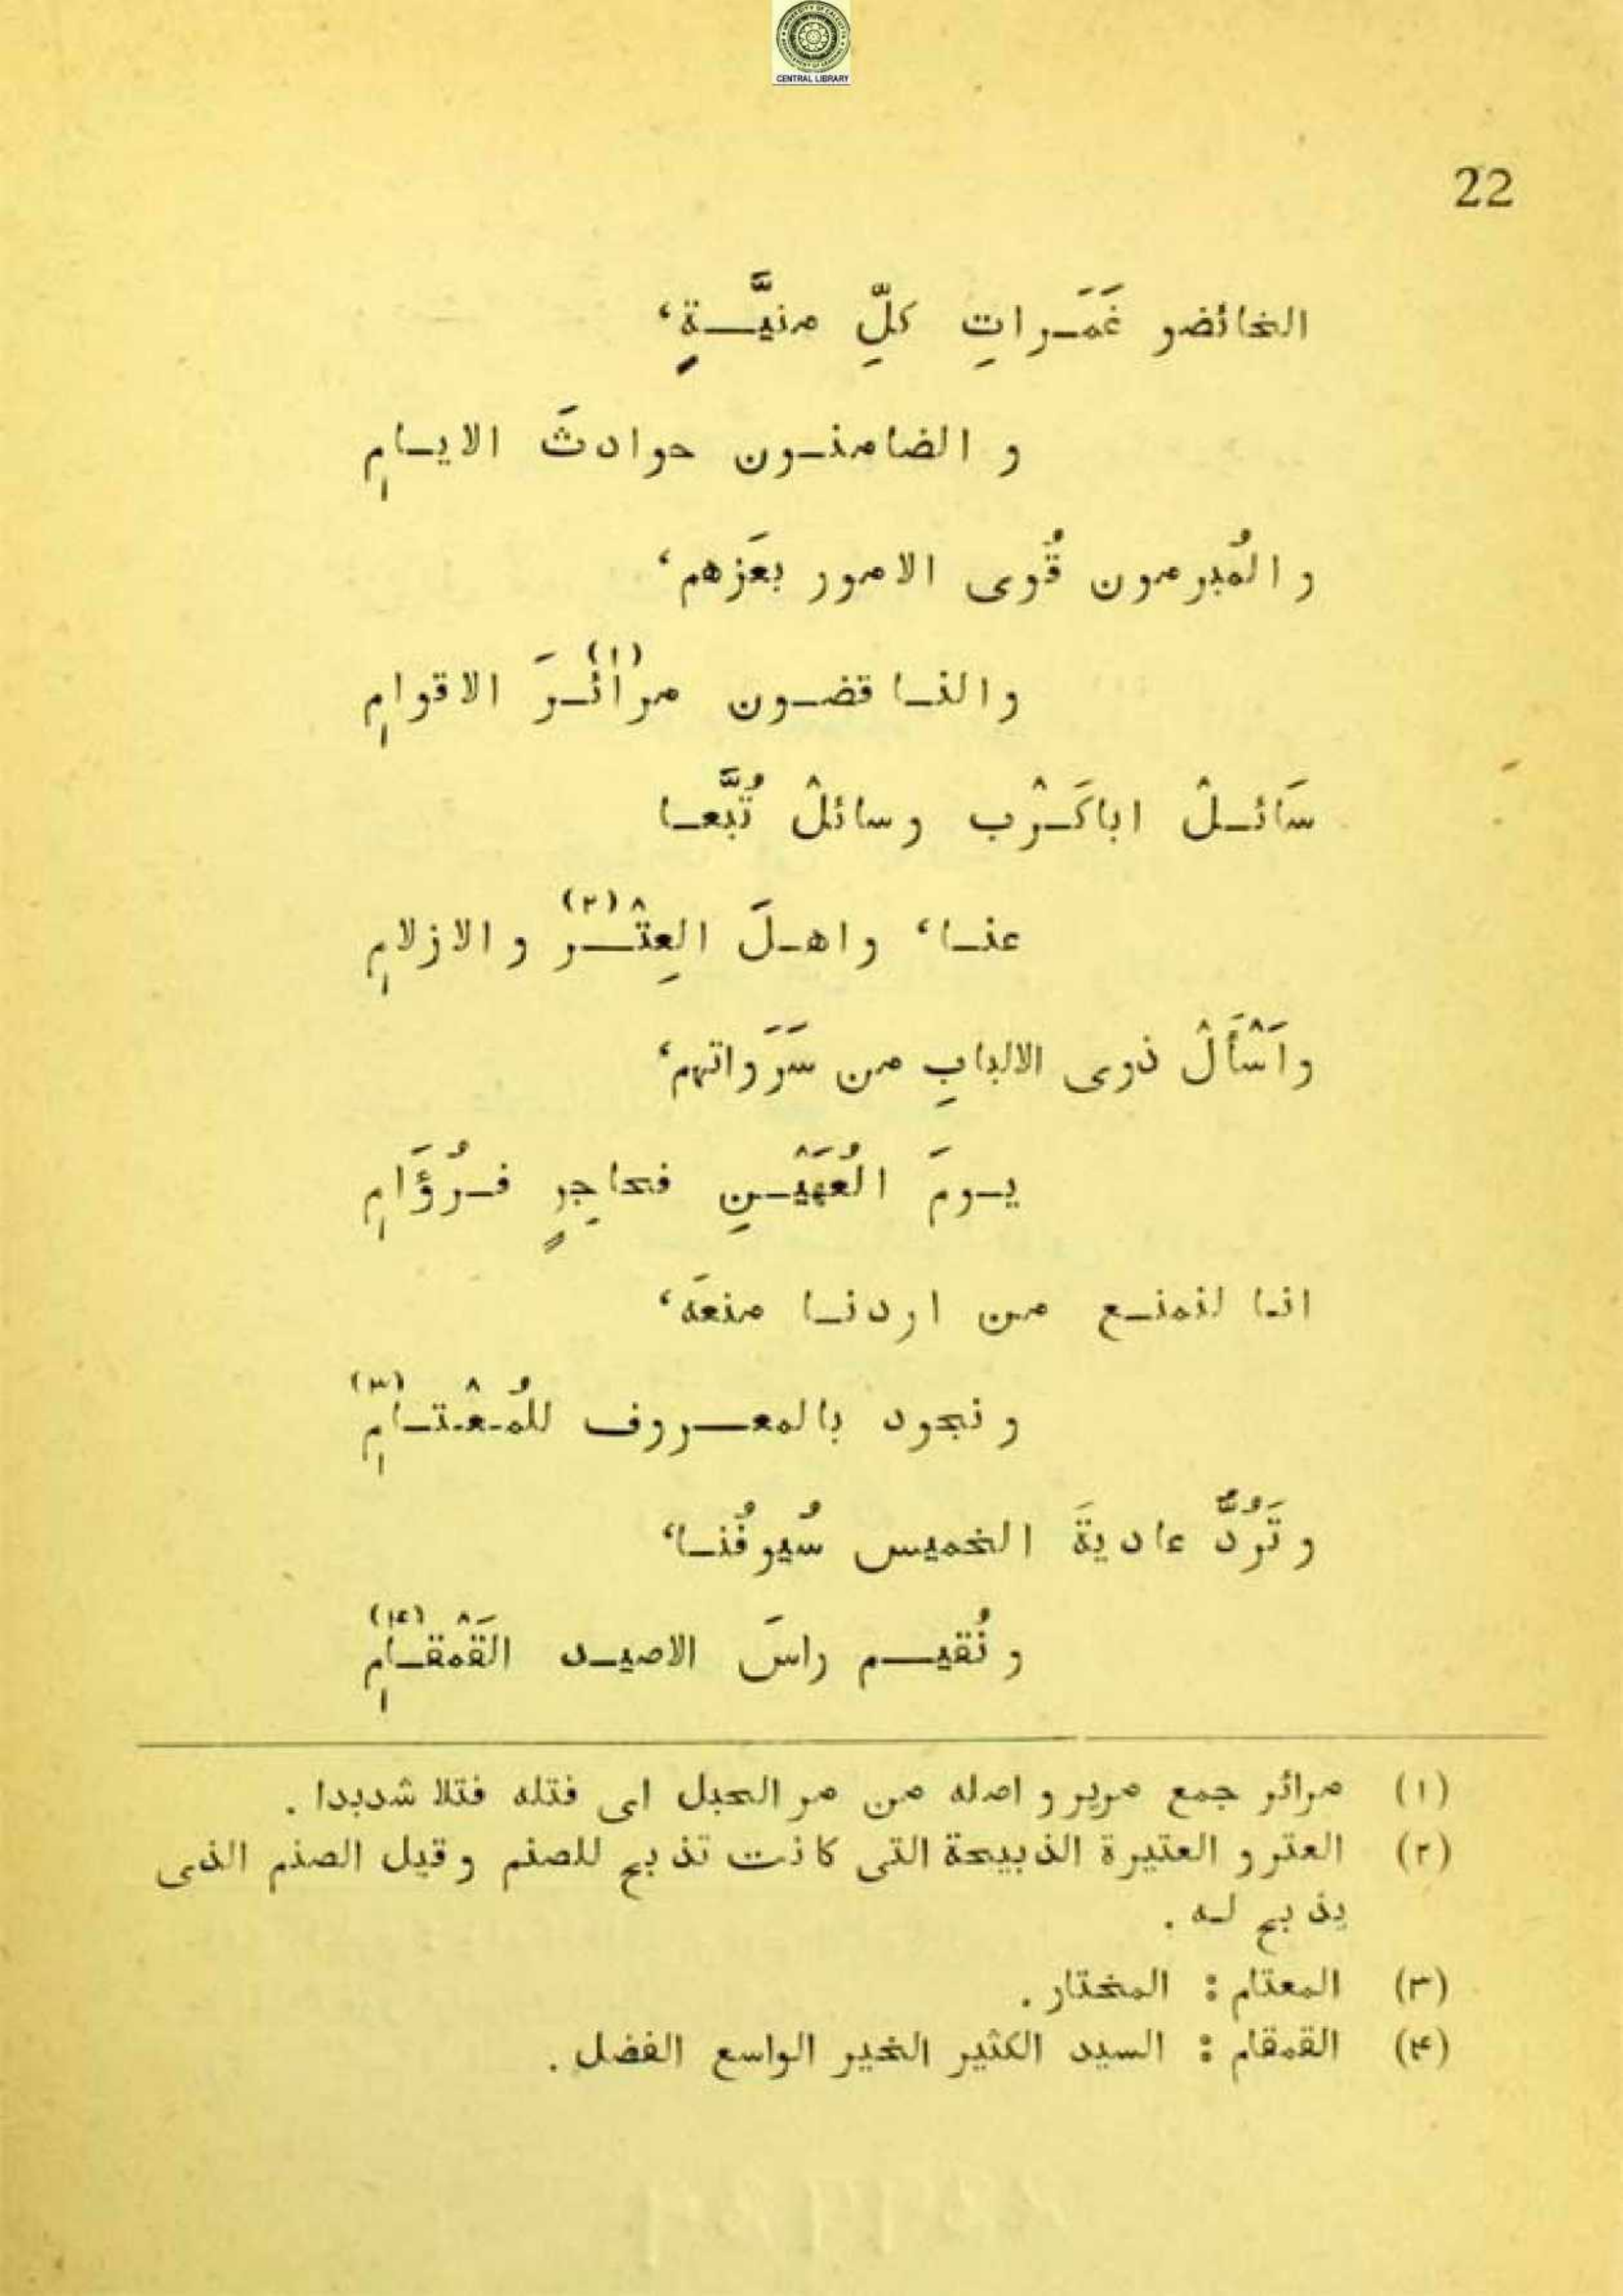 CENTRAL LIBRARY
22
الخائضو غَمَرَاتِ كلِّ منيَّةٍ،
و الضامنون حوادثَ الايامِ
و المُبرمون قُوى الامور بعَزهم،
والناقضون مرائرَ (١) الاقوامِ
سَائلْ اباكَرْب وسائلْ تُبَّعا
عنا، واهلَ العِتْر (٢) و الازلامِ
واَسْأَلْ ذوى الالبابِ من سَرَواتهم،
يومَ العُهَيْنِ فحاجِرٍ فرُؤَامِ
انا لنمنع من اردنا منعَه،
و نجود بالمعروف للمُعْتامِ (٣)
و تَرُدُّ عاديةَ الخميس سُيوفُنا،
و نُقيم راسَ الاصيد القَمْقامِ (۴)
(١) مرائر جمع مرير و اصله من مر الحبل اى فتله فتلا شديدا .
(٢) العتر و العتيرة الذبيحة التى كانت تذبح للصنم و قيل الصنم الذى
يذبح له .
(٣) المعتام : المختار .
(۴) القمقام : السيد الكثير الخير الواسع الفضل .